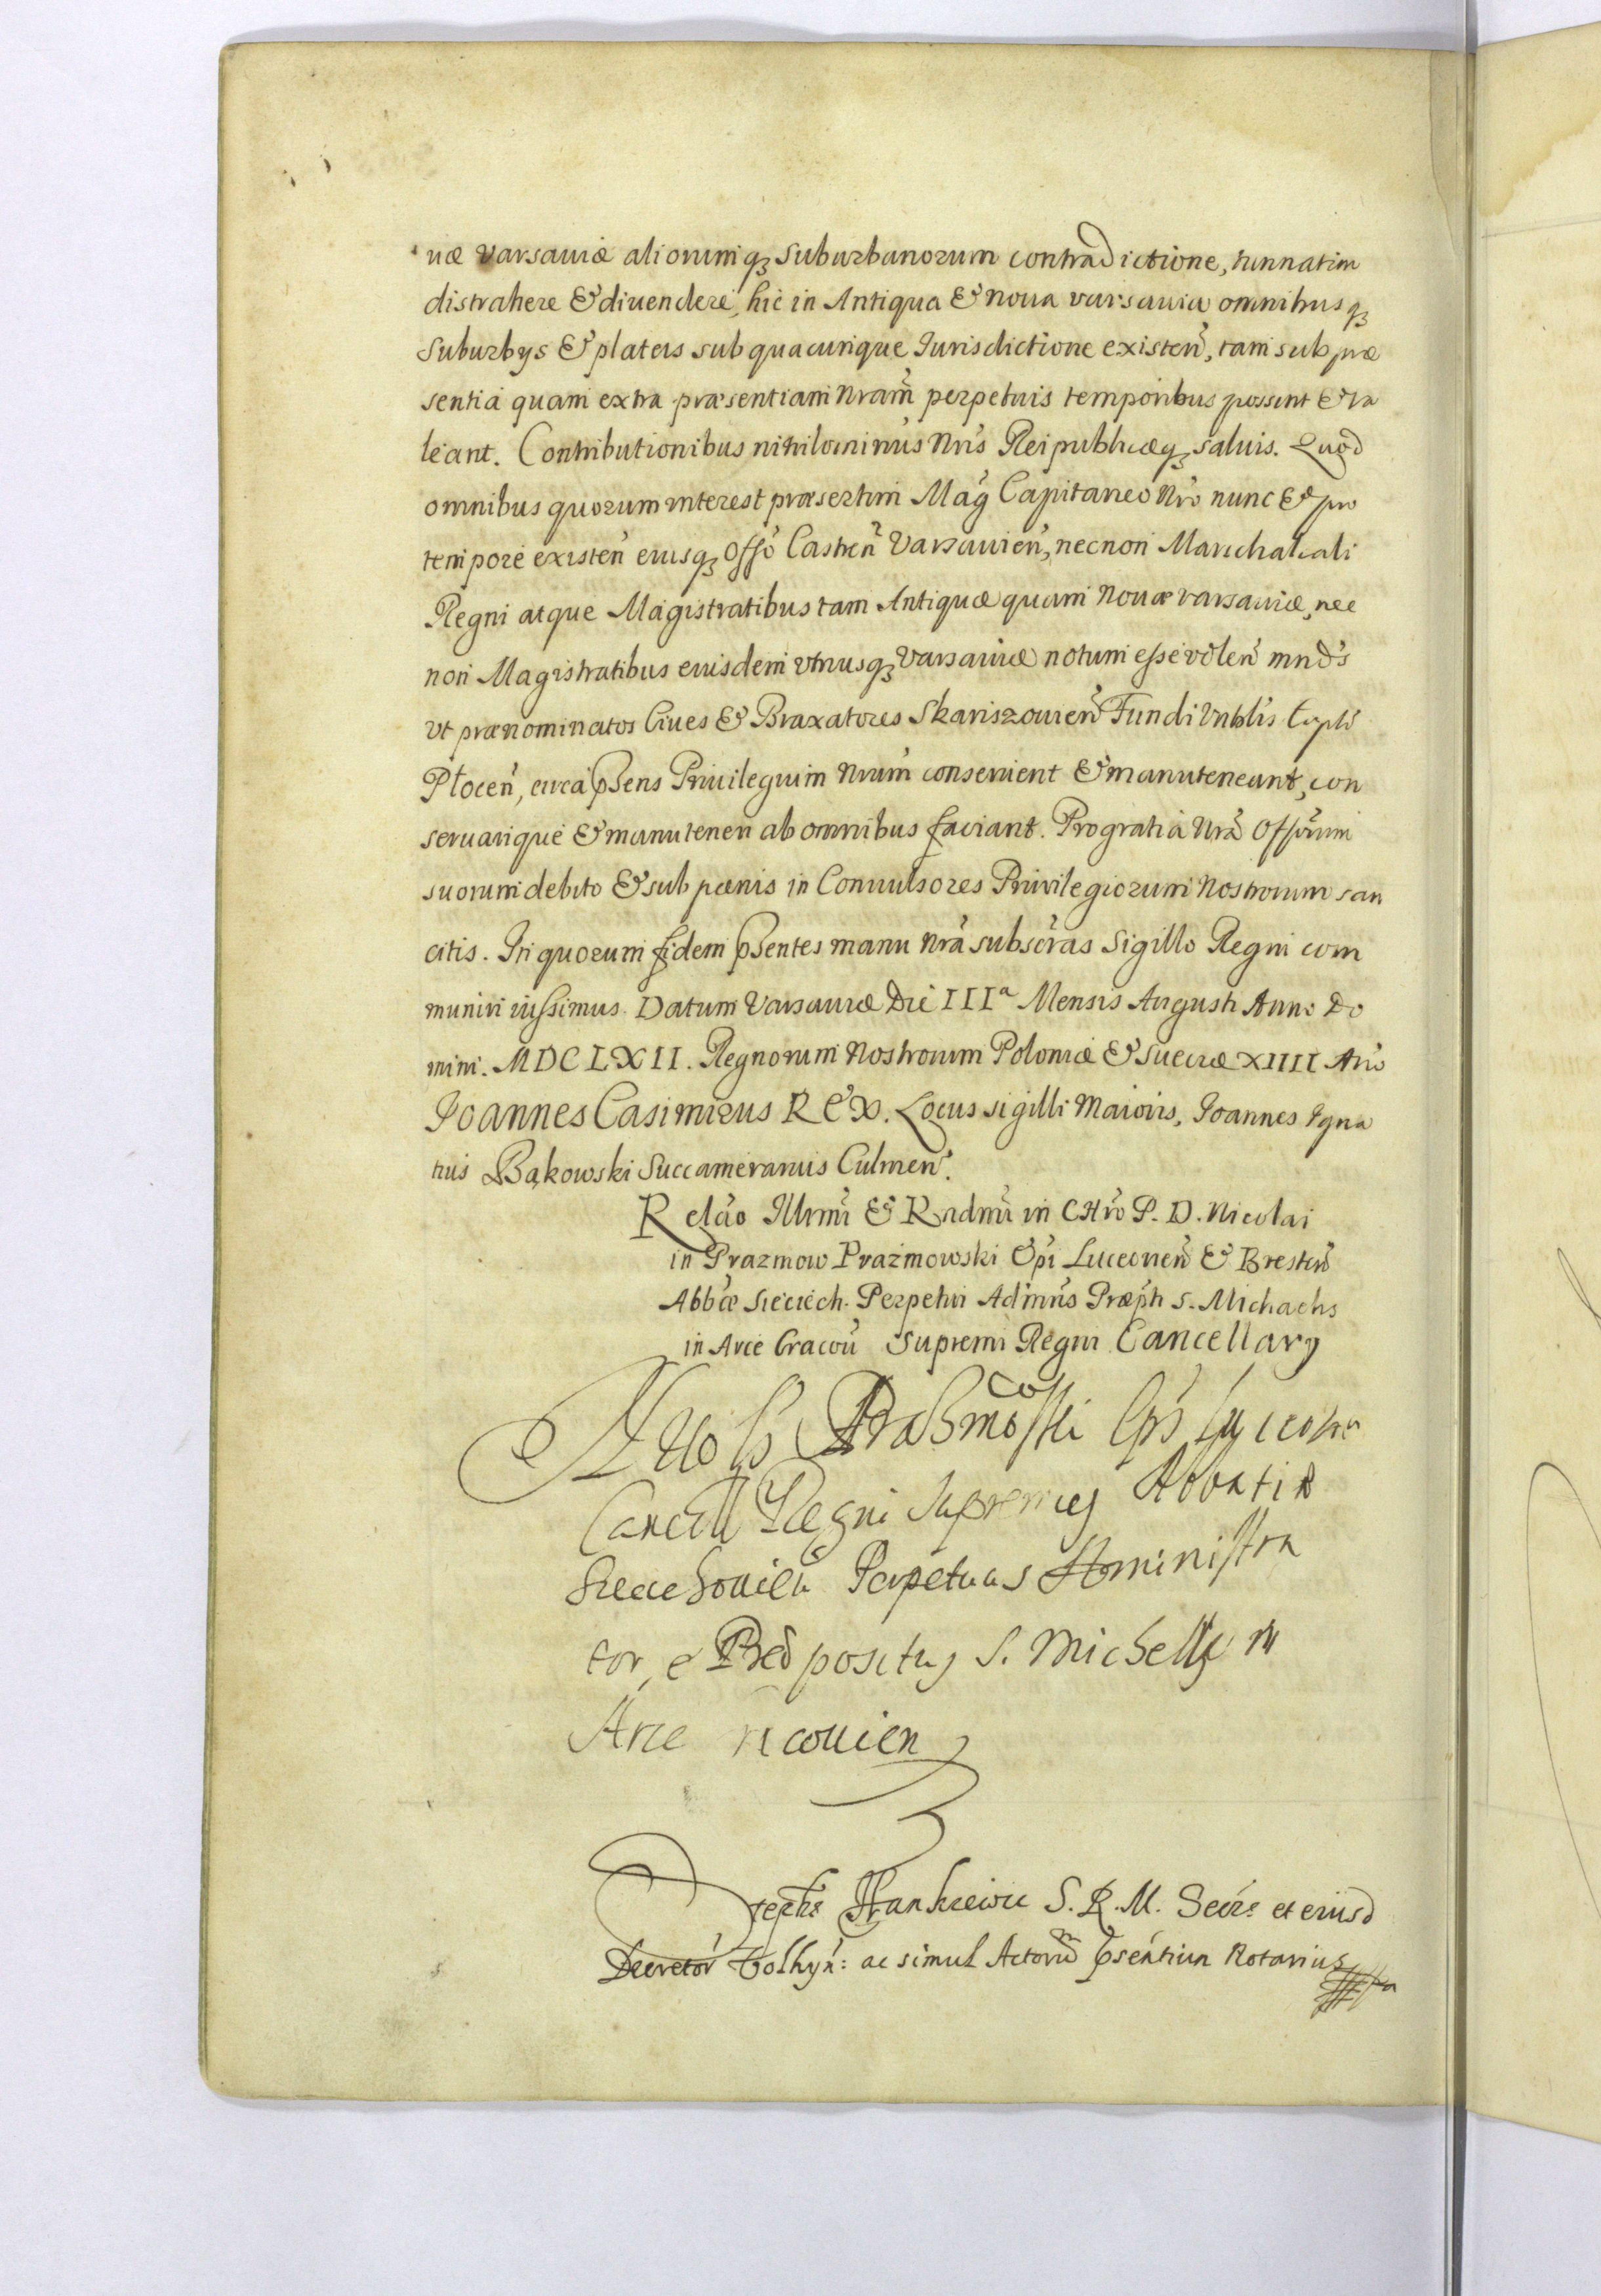 uæ Varsauiæ aliorumq3 Suburbanorum contradictione, tunnatim
distrahere & diuendere, hic in Antiqua & noua varsauia omnibusq3
Suburbys & plateis sub quacunque Jurisdictione existen, tam sub præ
sentia quam extra præsentiam nram perpetuis temporibus possint & va
leant. Contributionibus nihilominus nris Reipublicæq3 saluis. Quod
omnibus quorum interest præsertim Mag Capitaneo nro nunc & pro
tempore existen eiusq3 Offo Castren Varsauien, necnon Marschalcali
Regni atque Magistratibus tam Antiquæ quam nouæ varsauiæ, nec
non Magistratibus eiusdem vtriusq3 Varsauiæ notum esse volen mnds
vt prænominatos Ciues & Braxatores Skariszouien Fundi Vnblis Capli
Plocen, circa psens Priuilegium nrum conseruent & manuteneant, con
seruarique & manuteneri ab omnibus faciant. Pro gratia nra Offorum
suorum debito & sub pænis in Conuulsores Priuilegiorum Nostrorum san
citis. In quorum fidem psentes manu nra subscras Sigillo Regni com
muniri iussimus. Datum Varsauiæ Die IIIa Mensis Augusti Anno Do
mini. MDCLXII. Regnorum Nostrorum Poloniæ & Sueciæ XIIII Ano
Joannes Casimirus REX. Locus sigilli Maioris, Joannes Igna
tius Bąkowski Succamerarius Culmen.
Relao Illrmi & Rndmi in CHro P. D. Nicolai
in Prazmow Prażmowski Epi Luceorien & Bresten
Abbæ Sieciech. Perpetui Admris Præpti S. Michaelis
in Arce Cracou Supremi Regni Cancellary
Praßmoski Eps Luceor
Cancell Regni Supremus Abbatiæ
Perpetuus Administra
tor, e Prepositus S. Michellis in
Arce
Stephs Hankiewic S. R. M. Secrs et eiusd
Decretor Volhyn: ac simul Actoru psentium Notarius